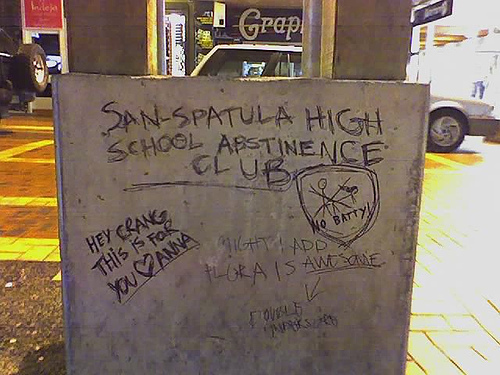 Grap
SAN-SPATULA HIGH
SCHOOL ABSTINENCE
CLUB
NO BATTY!
HEY CRANG
THIS IS FOR
YOU ♡ ANNA
MIGHT I ADD
FLORA IS AWESOME
DOUBLE